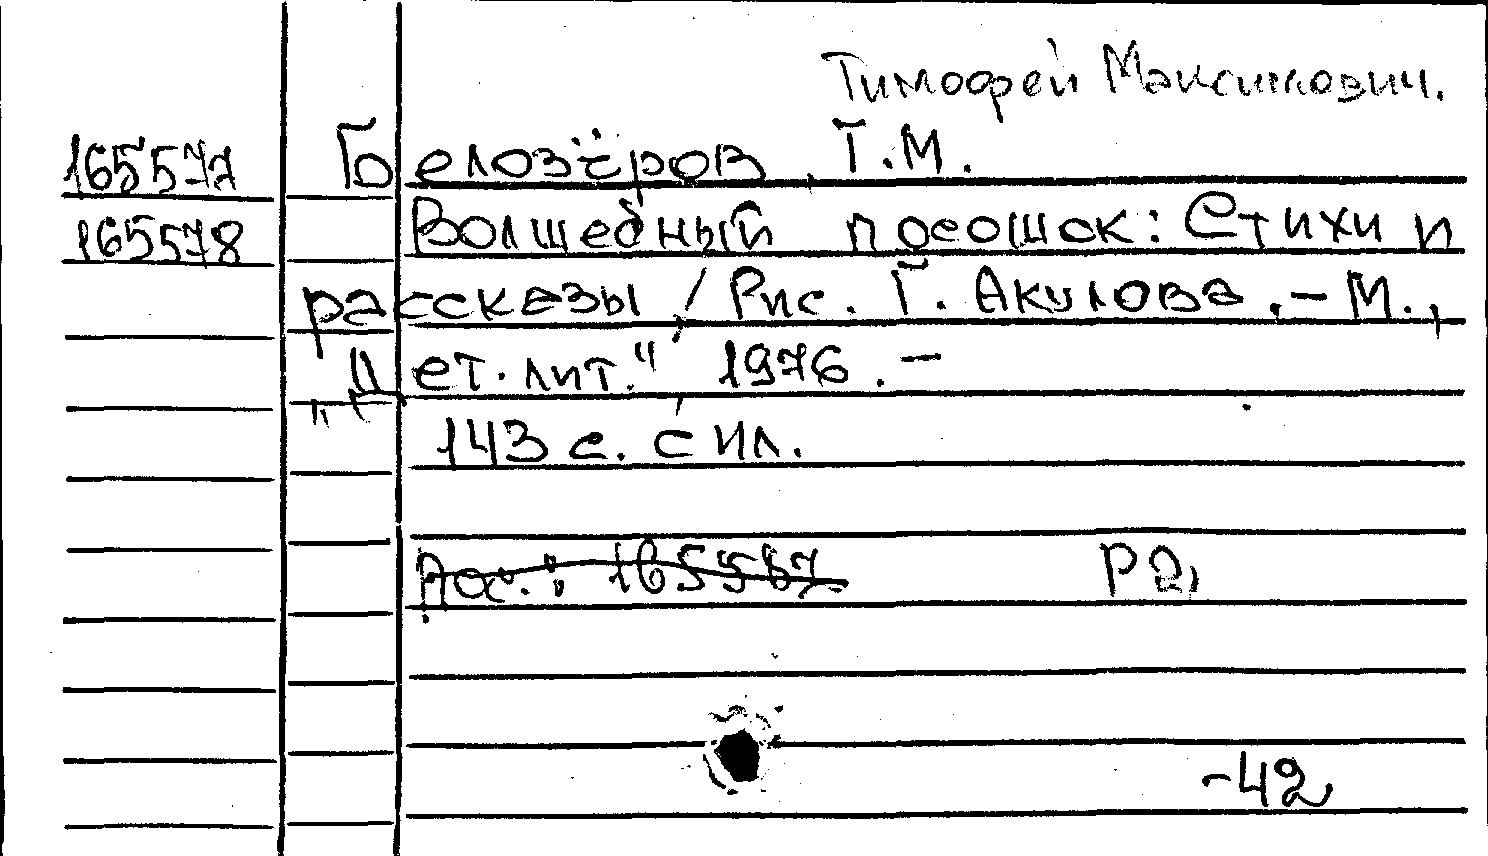 Тимофей Максимович.
165577 Белозёров, Т.М.
165578 Волшебный посошок: Стихи и
рассказы / Рис. Г. Акулова. – М.,
„Дет. лит.“, 1976. –
143 с. с ил.
165567 Р2,
-42